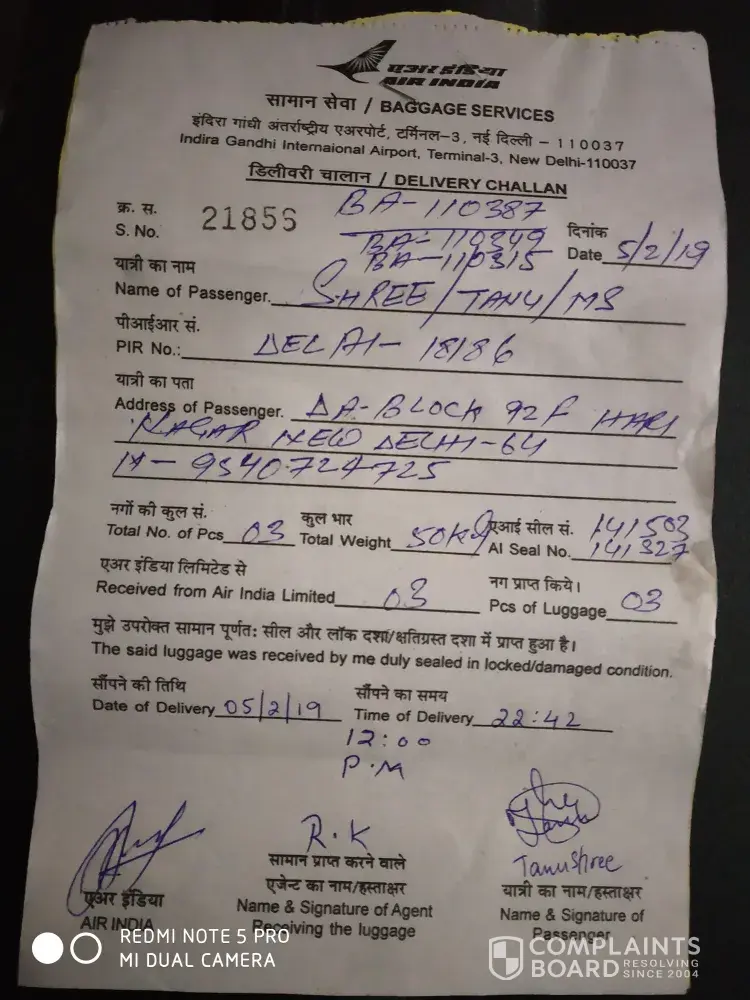 एअर इंडिया
AIR INDIA
सामान सेवा / BAGGAGE SERVICES
इंदिरा गांधी अंतर्राष्ट्रीय एअरपोर्ट, टर्मिनल–3, नई दिल्ली – 110037
Indira Gandhi Internaional Airport, Terminal-3, New Delhi-110037
डिलीवरी चालान / DELIVERY CHALLAN
BA-110387
क्र. स.
S. No. 21856
BA-110349
BA-110315
दिनांक
Date 5/2/19
यात्री का नाम
Name of Passenger. SHREE/TANU/MS
पीआईआर सं.
PIR No.: DEL AI- 18186
यात्री का पता
Address of Passenger. DA-BLOCK 92F HARI
NAGAR NEW DELHI-64
M- 9540724725
नगों की कुल सं. कुल भार एआई सील सं. 141503
Total No. of Pcs 03 Total Weight 50Kg AI Seal No. 141327
एअर इंडिया लिमिटेड से नग प्राप्त किये।
Received from Air India Limited 03 Pcs of Luggage 03
मुझे उपरोक्त सामान पूर्णतः सील और लॉक दशा/क्षतिग्रस्त दशा में प्राप्त हुआ है।
The said luggage was received by me duly sealed in locked/damaged condition.
सौंपने की तिथि सौंपने का समय
Date of Delivery 05/2/19 Time of Delivery 22:42
12:00
P.M
R.K
Tanushree
एअर इंडिया
AIR INDIA
सामान प्राप्त करने वाले
एजेन्ट का नाम/हस्ताक्षर
Name & Signature of Agent
Receiving the luggage
यात्री का नाम/हस्ताक्षर
Name & Signature of
Passenger
REDMI NOTE 5 PRO
MI DUAL CAMERA
COMPLAINTS
BOARD RESOLVING
SINCE 2004